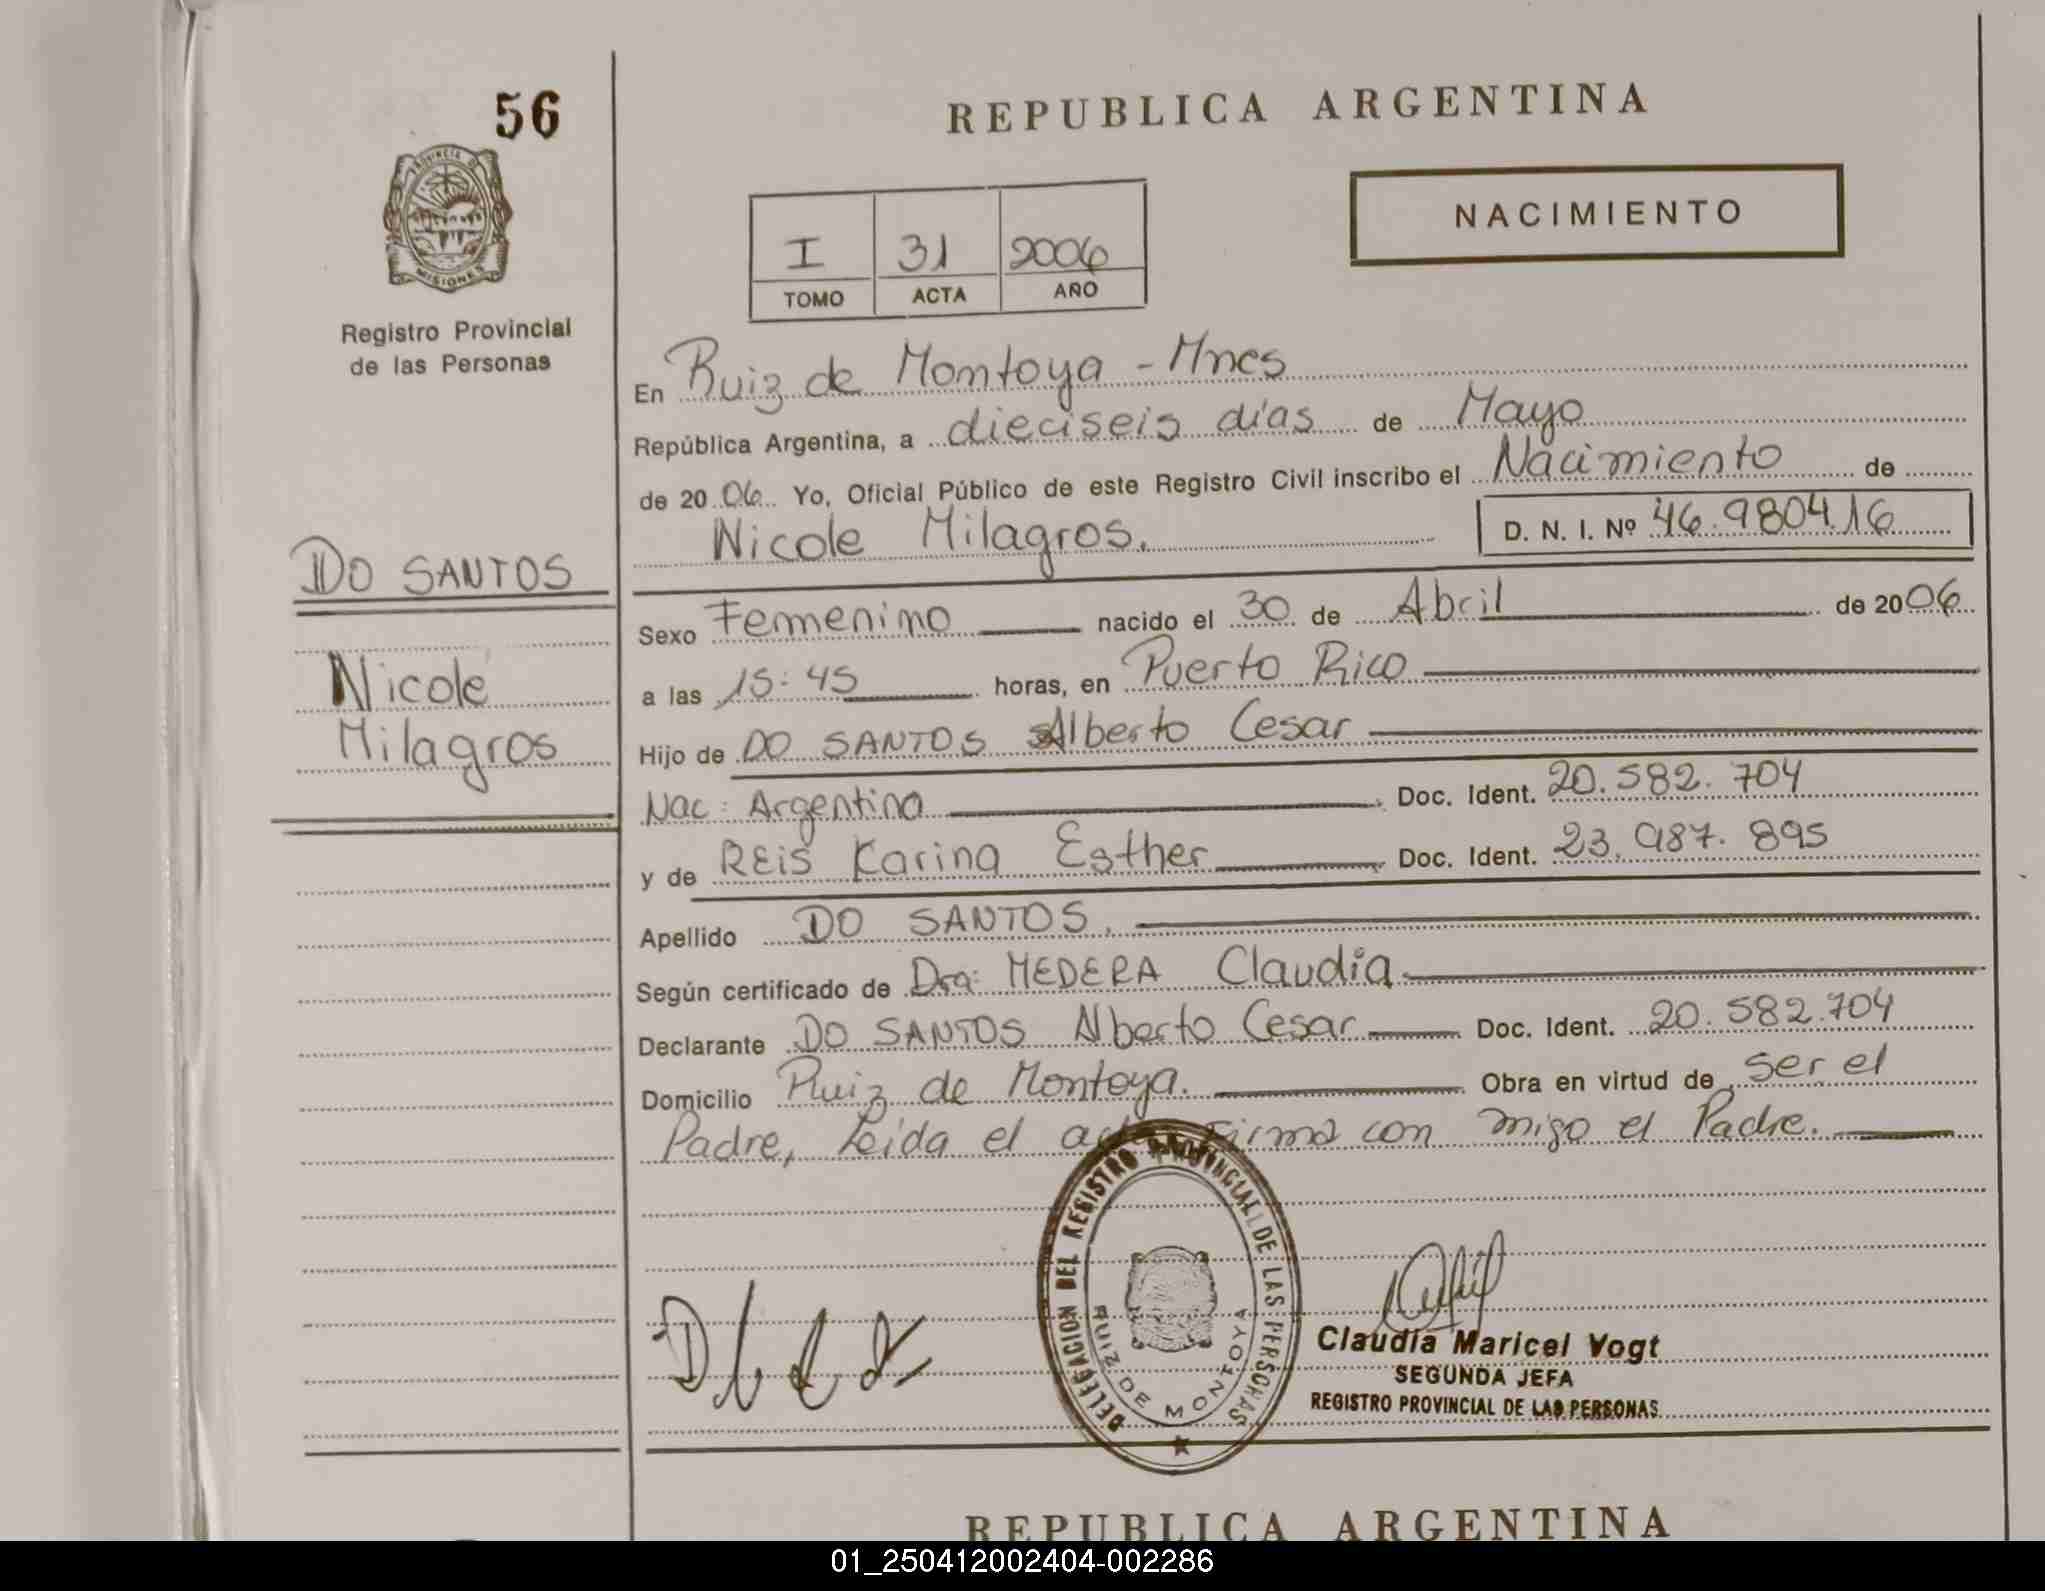 56
REPUBLICA ARGENTINA
PROVINCIA DE
MISIONES
Registro Provincial
de las Personas
NACIMIENTO
I 31 2006
TOMO ACTA AÑO
En Ruiz de Montoya - Mnes
República Argentina, a dieciseis días de Mayo
de 2006 Yo, Oficial Público de este Registro Civil inscribo el Nacimiento de
Nicole Milagros. D. N. I. Nº 46.980416
DO SANTOS
Nicole
Milagros
Sexo Femenino nacido el 30 de Abril de 2006
a las 15:45 horas, en Puerto Rico
Hijo de DO SANTOS Alberto Cesar
Nac: Argentina Doc. Ident. 20.582.704
y de REIS Karina Esther Doc. Ident. 23.987.895
Apellido DO SANTOS.
Según certificado de Dra: MEDERA Claudia
Declarante DO SANTOS Alberto Cesar Doc. Ident. 20.582.704
Domicilio Ruiz de Montoya. Obra en virtud de ser el
Padre, Leida el acta firma con migo el Padre.
DELEGACION DEL REGISTRO PROVINCIAL DE LAS PERSONAS
RUIZ DE MONTOYA
Claudia Maricel Vogt
SEGUNDA JEFA
REGISTRO PROVINCIAL DE LAS PERSONAS
REPUBLICA ARGENTINA
01_250412002404-002286